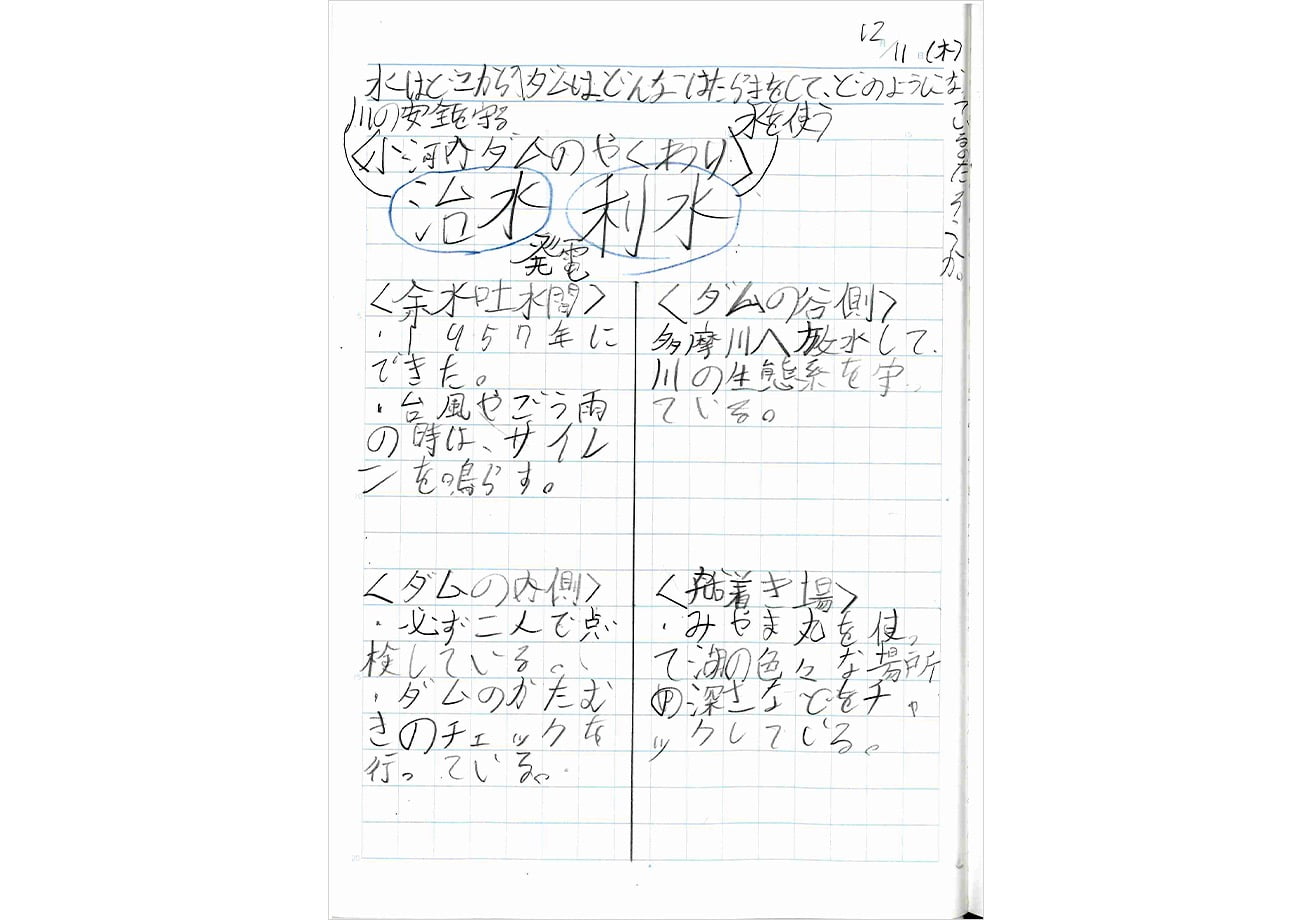 12/11(木)
水はどこから〈ダムは、どんなはたらきをして、どのようになっているのだろうか。
川の安全を守る
水を使う
〈小河内ダムのやくわり〉
治水 利水
発電
〈余水吐水門〉
・1957年に
できた。
・台風やごう雨
の時は、サイレ
ンを鳴らす。
〈ダムの谷側〉
多摩川へ放水して、
川の生態系を守っ
ている。
〈ダムの内側〉
・必ず二人で点
検している。
・ダムのかたむ
きのチェックを
行っている。
〈船着き場〉
・みやま丸を使っ
て湖の色々な場所
の深さなどをチャ
ックしている。